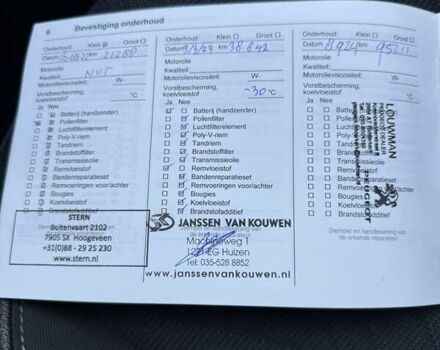 6
Bevestiging onderhoud
Onderhoud: Klein Groot
Datum 15-08-22 km 21288
Motorolie
Kwaliteit: NVT
Motorolieviscositeit: W-
Vorstbescherming,
koelvloeistof °C
Ja Nee
Batterij (handzender)
Pollenfilter
Luchtfilterelement
Poly-V-riem
Tandriem
Brandstoffilter
Transmissieolie
Remvloeistof
Bandenreparatieset
Remvoeringen voor/achter
Bougies
Koelvloeistof
Brandstofadditief
STERN
Buitenvaart 2102
7905 SX Hoogeveen
+31(0)88 - 29 25 230
www.stern.nl
Onderhoud: Klein Groot
Datum 9/3/23 km 38.842
Motorolie
Kwaliteit:
Motorolieviscositeit: W-
Vorstbescherming,
koelvloeistof -30 °C
Ja Nee
Batterij (handzender)
Pollenfilter
Luchtfilterelement
Poly-V-riem
Tandriem
Brandstoffilter
Transmissieolie
Remvloeistof
Bandenreparatieset
Remvoeringen voor/achter
Bougies
Koelvloeistof
Brandstofadditief
JANSSEN VAN KOUWEN
Stempel en handtekening van
de erkende reparateur
Machineweg 1
1271 EG Huizen
Tel: 035-528 8852
www.janssenvankouwen.nl
Onderhoud: Klein Groot
Datum 8924 km
Motorolie
Kwaliteit:
Motorolieviscositeit: W-
Vorstbescherming,
koelvloeistof °C
Ja Nee
Batterij
Pollenfilter
Luchtfilterelement
Poly-V-riem
Tandriem
Brandstoffilter
Transmissieolie
Remvloeistof
Bandenreparatieset
Remvoeringen voor/achter
Bougies
Koelvloeistof
Brandstofadditief
LOUWMAN
PEUGEOT DEALER
PEUGEOT
Stempel en handtekening van
de erkende reparateur